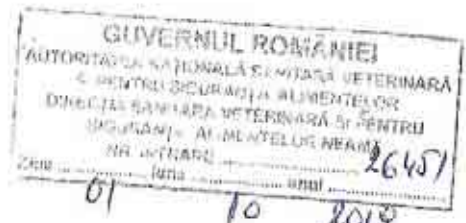 GUVERNUL ROMÂNIEI
AUTORITATEA NAȚIONALĂ SANITARĂ VETERINARĂ
ȘI PENTRU SIGURANȚA ALIMENTELOR
DIRECȚIA SANITARĂ VETERINARĂ ȘI PENTRU
SIGURANȚA ALIMENTELOR NEAMȚ
NR. INTRARE ............ 26457
Ziua ........ luna ........ anul ........
01 10